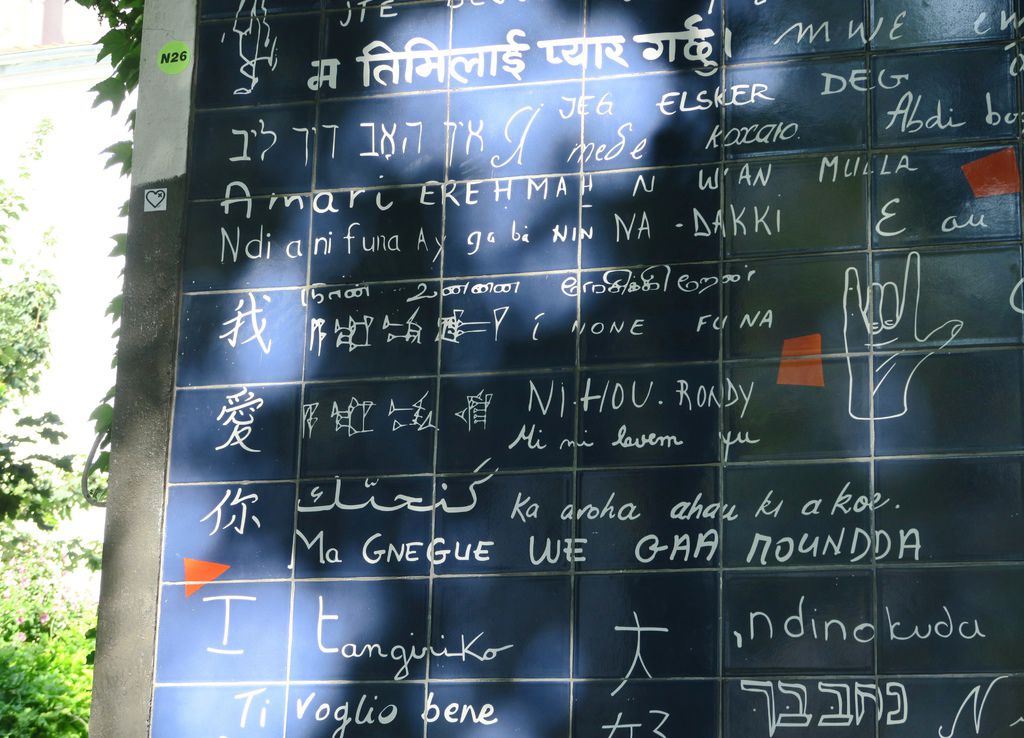 N26
म तिमिलाई प्यार गर्छु।
MWE
JEG ELSKER DEG
איך האב דיך ליב
Я тебе кохаю.
Abdi
Amari EREHMAH N WAN MULLA
Ndi ani funa Ay ga bi NIN NA-DAKKI
E au
நான் உன்னை நேசிக்கிறேன்
我
i NONE FUNA
愛
NI.HOU.RONDY
Mi mi lavem yu
你
كنحتك
Ka aroha ahau ki a koe.
Ma GNEGUE WE GAA MOUNDDA
I
tangiriko
大
ndinokuda
Ti voglio bene